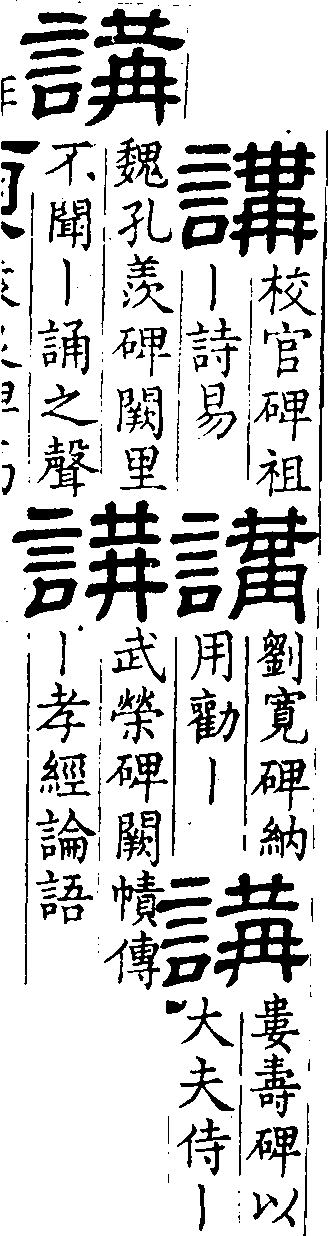 講
校官碑祖
丨詩易
講
劉寬碑納
用勸丨
講
婁壽碑以
大夫侍丨
講
魏孔羨碑闕里
不聞丨誦之聲
講
武榮碑闕幘傳
丨孝經論語